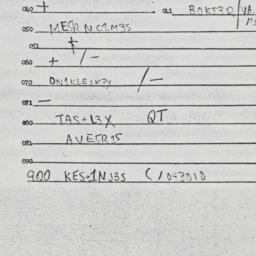 040 +
041 BOK530/VA.
050 MESR NC1M35
051 +
060 + / -
070 DN1KLE1K3Y / -
071 -
080 TAS+L3X QT
081 AVESR15
090
900 KES+1NJ35 (/043010